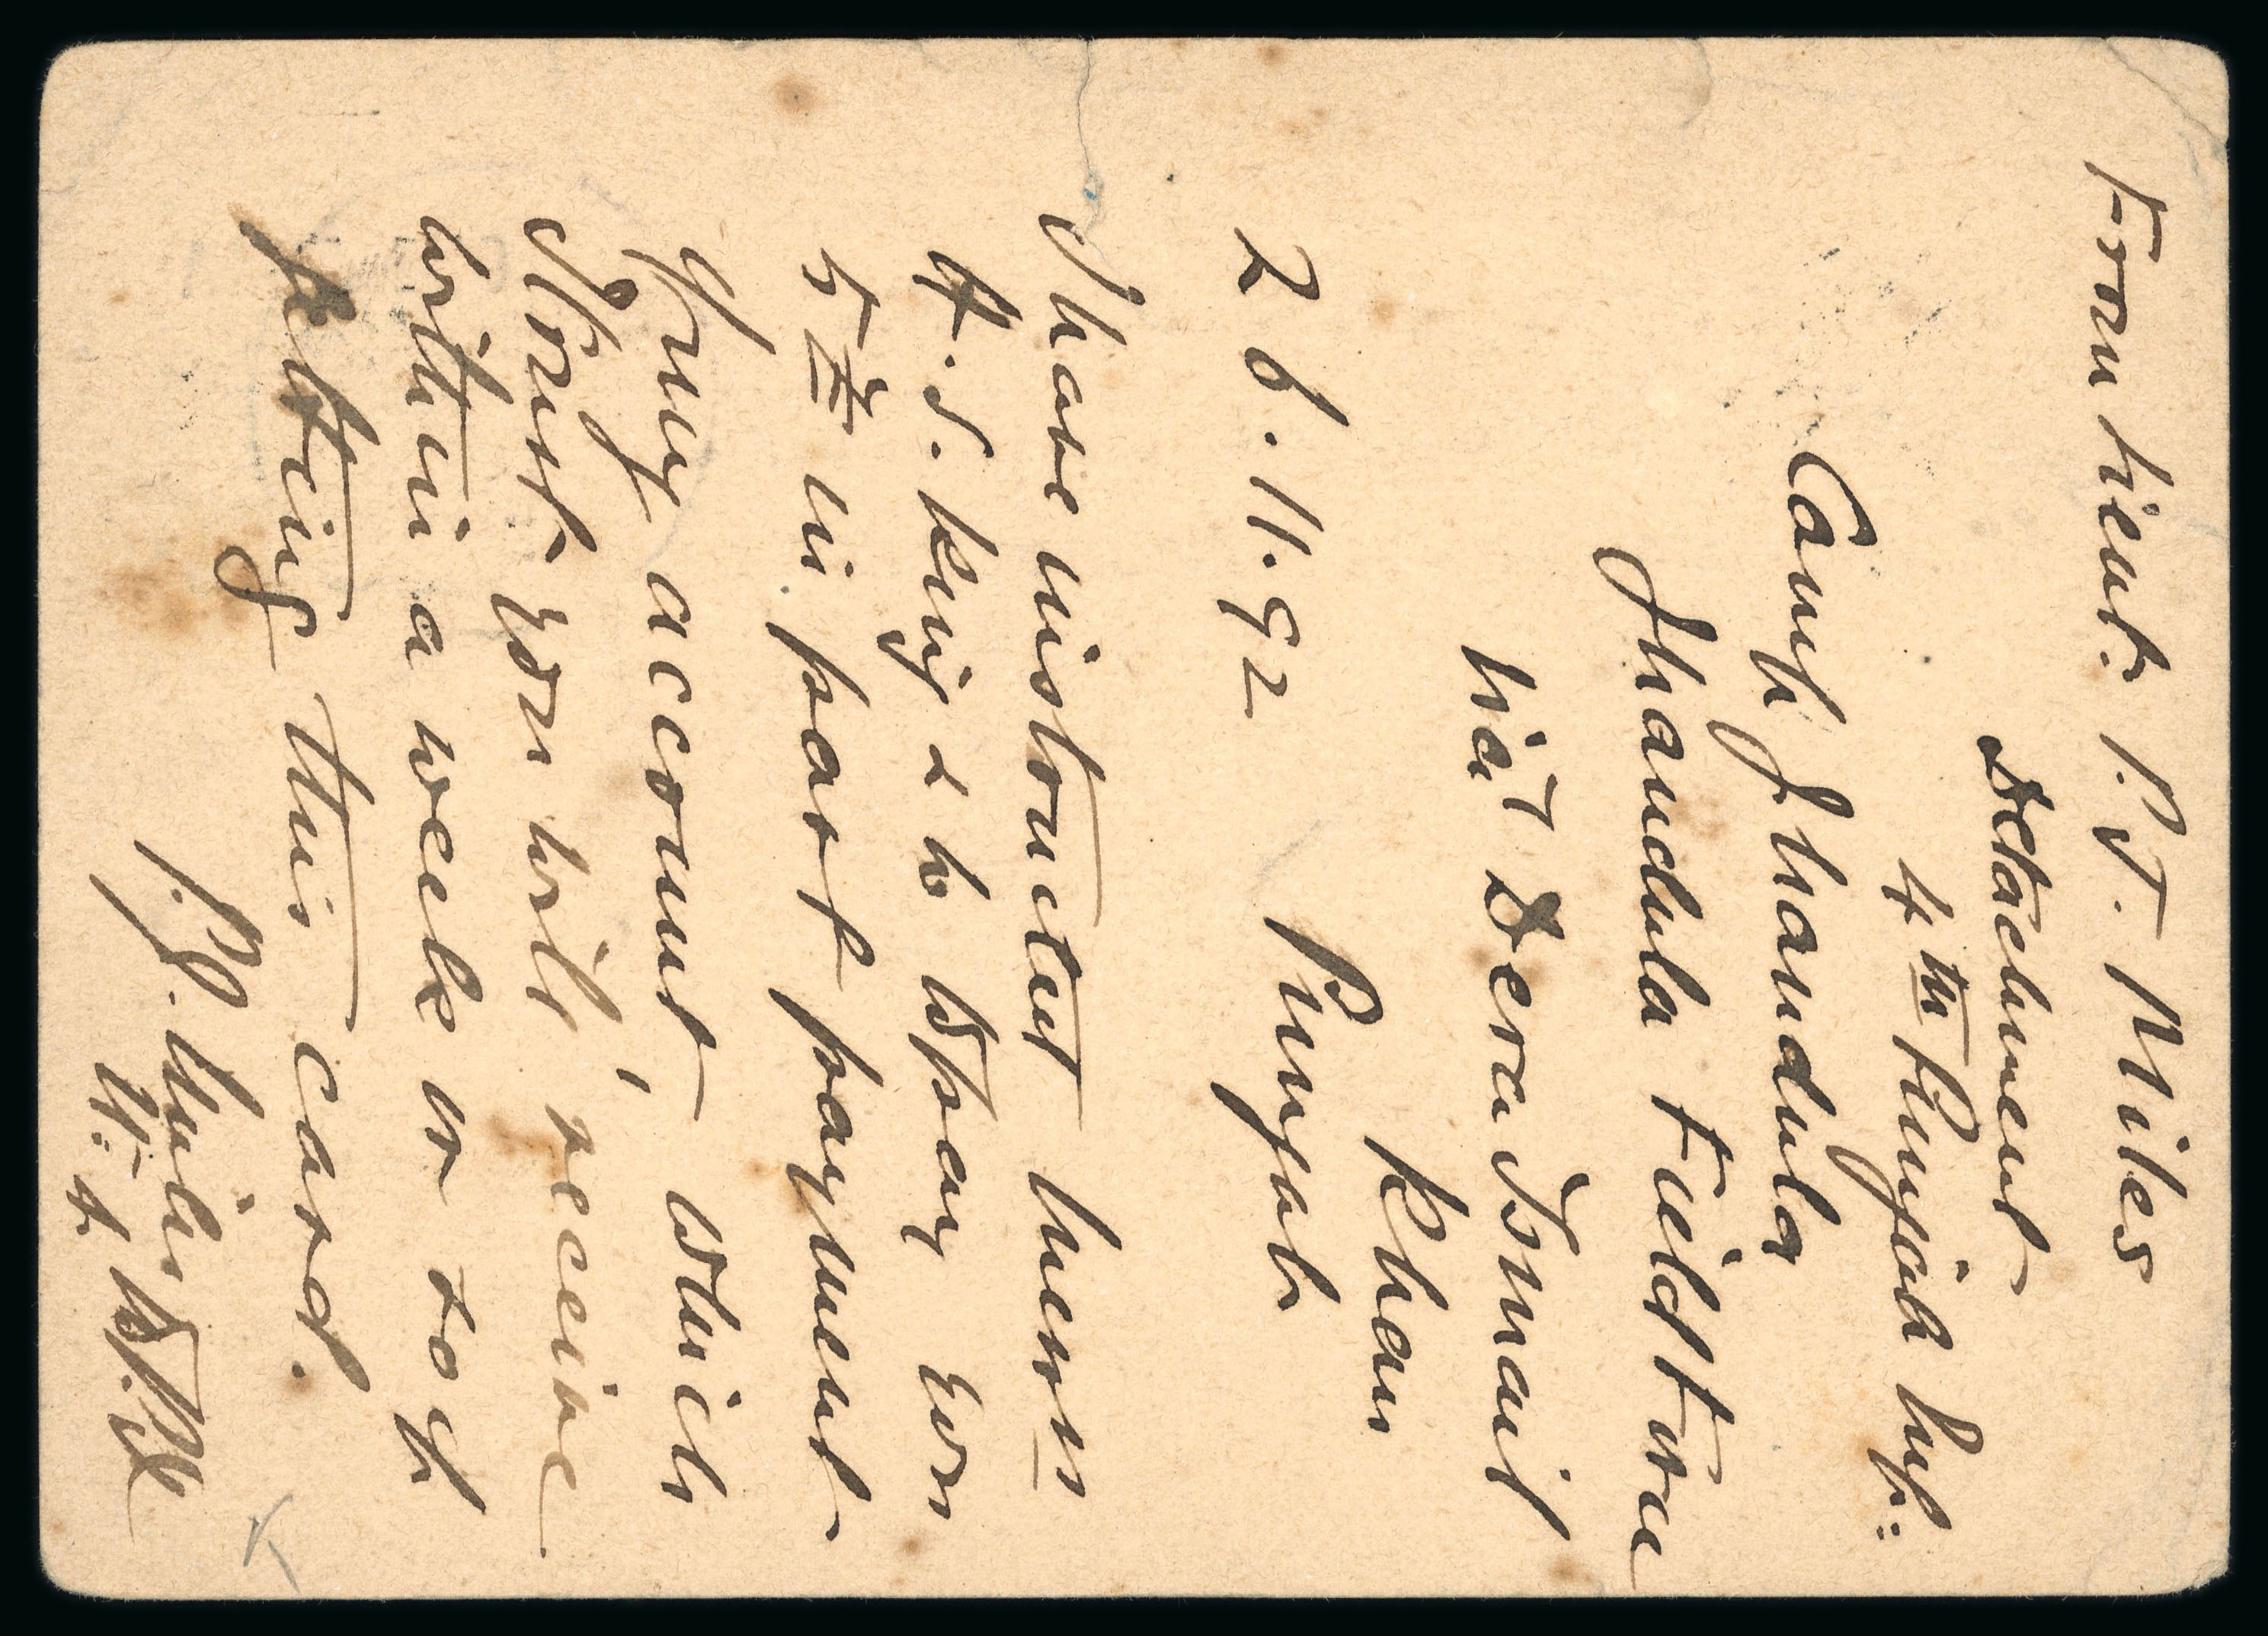 From Lieut. P. J. Miles
Detachment
4th Punjab Inf:
Camp Jhandula
Jhandula Field Force
viâ Dera Ismail
Khan
26.11.92 Punjab
I have instructed Messrs
H. S. King & Co to pay you
£5 in part payment
of my account, which
I trust you will receive
within a week or so of
getting this card.
P. J. Miles Lt.
4th P. I.